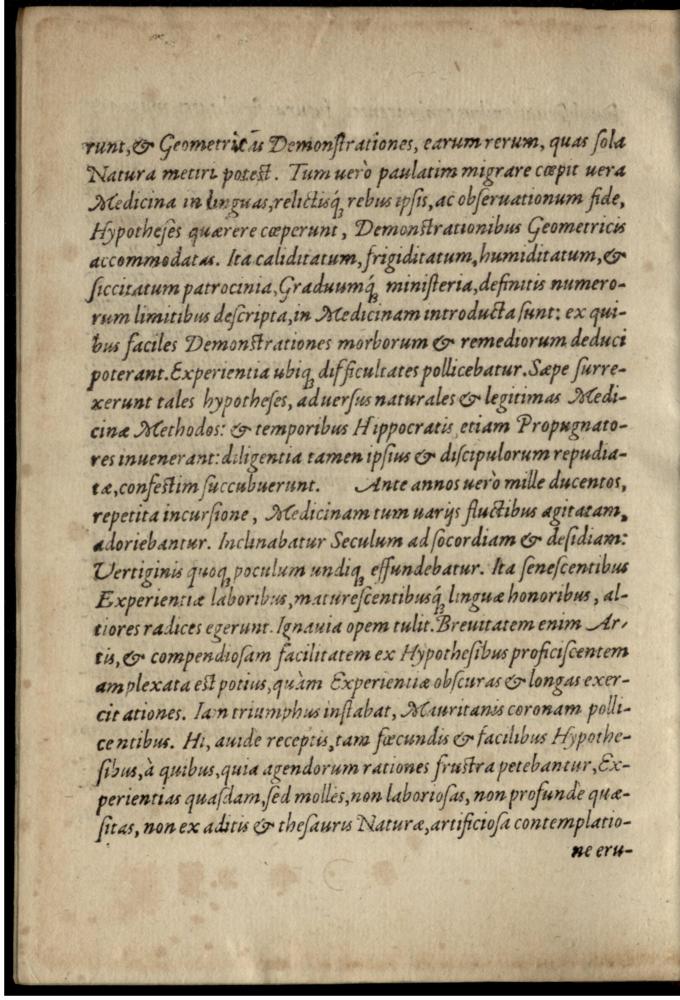 runt, & Geometricāu Demonſtrationes, earum rerum, quas ſola
Natura metiri poteſt. Tum uerò paulatim migrare cœpit uera
Medicina in linguas, relictisq́ꝫ rebus ipſis, ac obſeruationum fide,
Hypotheſes quærere cœperunt, Demonſtrationibus Geometricis
accommodatas. Ita caliditatum, frigiditatum, humiditatum, &
ſiccitatum patrocinia, Graduumq́ꝫ miniſteria, definitis numero-
rum limitibus deſcripta, in Medicinam introducta ſunt: ex qui-
bus faciles Demonſtrationes morborum & remediorum deduci
poterant. Experientia ubiqꝫ difficultates pollicebatur. Sæpe ſurre-
xerunt tales hypotheſes, aduerſus naturales & legitimas Medi-
cinæ Methodos: & temporibus Hippocratis etiam Propugnato-
res inuenerant: diligentia tamen ipſius & diſcipulorum repudia-
tæ, confeſtim ſuccubuerunt. Ante annos uerò mille ducentos,
repetita incurſione, Medicinam tum uarijs fluctibus agitatam,
adoriebantur. Inclinabatur Seculum ad ſocordiam & deſidiam:
Vertiginis quoqꝫ poculum undiqꝫ effundebatur. Ita ſeneſcentibus
Experientiæ laboribus, matureſcentibusq́ꝫ linguæ honoribus, al-
tiores radices egerunt. Ignauia opem tulit. Breuitatem enim Ar-
tis, & compendioſam facilitatem ex Hypotheſibus proficiſcentem
amplexata eſt potius, quàm Experientiæ obſcuras & longas exer-
citationes. Iam triumphus inſtabat, Mauritanis coronam polli-
centibus. Hi, auide receptis, tam fœcundis & facilibus Hypothe-
ſibus, à quibus, quia agendorum rationes fruſtra petebantur, Ex-
perientias quaſdam, ſed molles, non laborioſas, non profundè quæ-
ſitas, non ex aditis & theſauris Naturæ, artificioſa contemplatio-
ne eru-